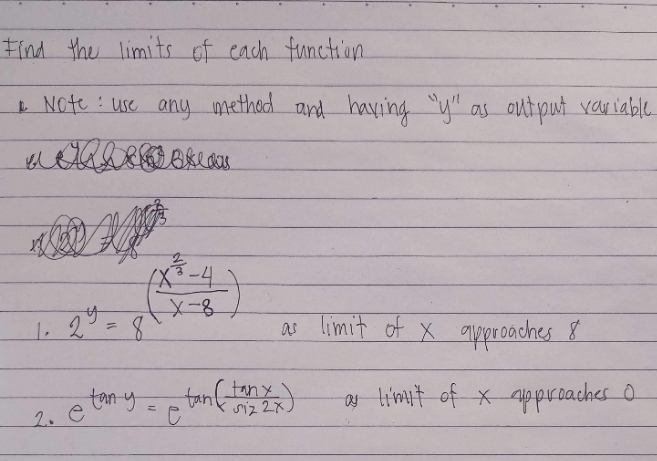 Find the limits of each function
Note : use any method and having "y" as output variable
1. 2^y = 8^((x^(2/3) - 4)/(x - 8)) as limit of x approaches 8
2. e^(tan y) = e^(tan(tan x / sin 2x)) as limit of x approaches 0